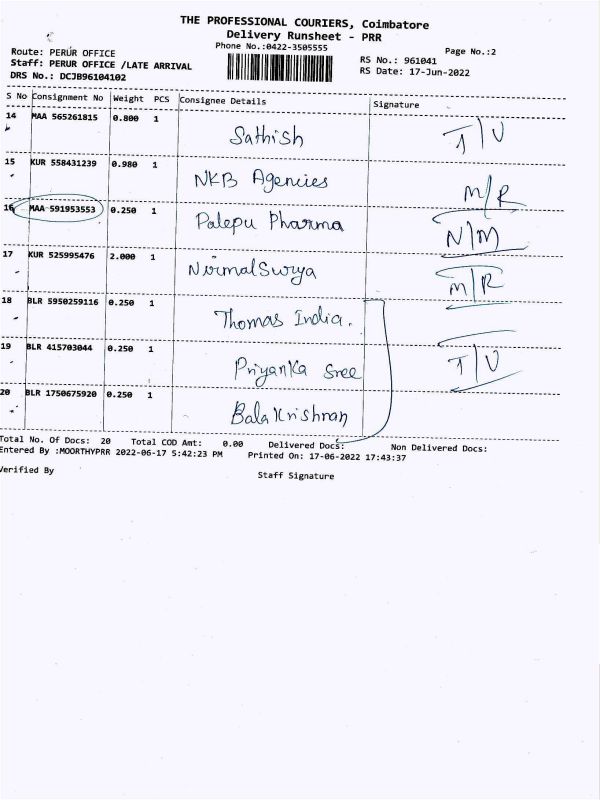 THE PROFESSIONAL COURIERS, Coimbatore
Delivery Runsheet - PRR
Phone No.:0422-3505555
Page No.:2
Route: PERUR OFFICE
RS No.: 961041
Staff: PERUR OFFICE /LATE ARRIVAL
RS Date: 17-Jun-2022
DRS No.: DCJB96104102
S No Consignment No Weight PCS Consignee Details Signature
14 MAA 565261815 0.800 1 Sathish T/U
15 KUR 558431239 0.980 1 NKB Agencies M/R
16 MAA 591953553 0.250 1 Palepu Pharma N/M
17 KUR 525995476 2.000 1 Nirmal Surya M/R
18 BLR 5950259116 0.250 1 Thomas India.
19 BLR 415703044 0.250 1 Priyanka Sree T/U
20 BLR 1750675920 0.250 1 Bala Krishnan
Total No. Of Docs: 20 Total COD Amt: 0.00 Delivered Docs: Non Delivered Docs:
Entered By :MOORTHYPRR 2022-06-17 5:42:23 PM Printed On: 17-06-2022 17:43:37
Verified By
Staff Signature